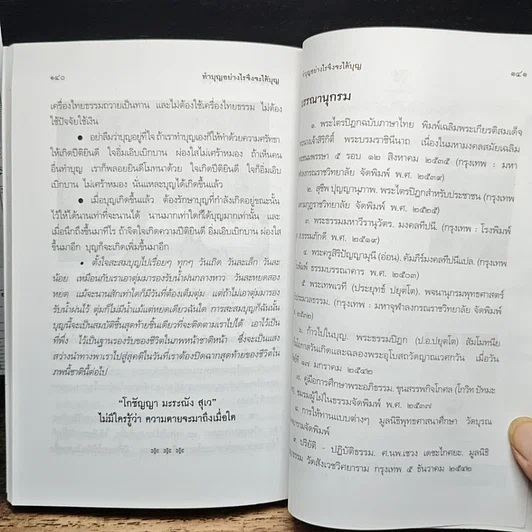 ๑๔๐ ทำบุญอย่างไรจึงจะได้บุญ
เครื่องไทยธรรมถวายเป็นทาน และไม่ต้องใช้เครื่องไทยธรรม ไม่ต้อง
ใช้ปัจจัยใช้เงิน
● อย่าลืมว่าบุญอยู่ที่ใจ ถ้าเราทำบุญเองก็ให้ทำด้วยความศรัทธา
ให้เกิดปีติยินดี ใจอิ่มเอิบเบิกบาน ผ่องใสไม่เศร้าหมอง ถ้าเห็นคน
อื่นทำบุญ เราก็พลอยยินดีโมทนาด้วย ใจเกิดปีติยินดี ใจอิ่มเอิบเบิก
บาน ไม่เศร้าหมอง นั่นแหละบุญได้เกิดขึ้นแล้ว
● เมื่อบุญเกิดขึ้นแล้ว ต้องรักษาบุญที่กำลังเกิดอยู่ขณะนั้น
ไว้ให้ได้นานเท่าที่จะนานได้ นานมากเท่าใดก็ได้บุญมากเท่านั้น และ
เมื่อนึกถึงขึ้นมาทีไร ถ้าจิตใจเกิดความปีติยินดี อิ่มเอิบเบิกบาน ผ่องใส
ขึ้นมาอีก บุญก็จะเกิดเพิ่มขึ้นมาอีก
● ตั้งใจสะสมบุญไปเรื่อยๆ ทุกๆ วันเกิด วันละเล็ก วันละ
น้อย เหมือนกับเราเอาตุ่มมารองรับน้ำฝนกลางหาว วันละหยดสอง
หยด แม้จะนานสักเท่าใดก็มีวันที่ต้องเต็มตุ่ม แต่ถ้าไม่เอาตุ่มมารอง
รับน้ำฝนไว้ ตุ่มก็ไม่มีน้ำแม้แต่หยดเดียวฉันใด การสะสมบุญก็ฉันนั้น
บุญนี้จะเป็นสมบัติชิ้นสุดท้ายชิ้นเดียวที่จะติดตามเราไปได้ เอาไว้เป็น
ที่พึ่ง ไว้เป็นฐานรองรับของชีวิตในภพหน้าชาติหน้า ซึ่งจะเป็นแสง
สว่างนำทางพาเราไปสู่สุคติในวันที่เราต้องปิดฉากสุดท้ายของชีวิตใน
ภพนี้ชาตินี้ต่อไป
“โกชัญญา มะระณัง สุเว”
ไม่มีใครรู้ว่า ความตายจะมาถึงเมื่อใด
ทำบุญอย่างไรจึงจะได้บุญ ๑๔๑
รรณานุกรม
๑. พระไตรปิฎกฉบับภาษาไทย พิมพ์เฉลิมพระเกียรติสมเด็จ
เจ้าสิริกิติ์ พระบรมราชินีนาถ เนื่องในมหามงคลสมัยเฉลิม
พรรษา ๕ รอบ ๑๒ สิงหาคม ๒๕๓๕ (กรุงเทพ : มหา
ราชวิทยาลัย จัดพิมพ์ พ.ศ. ๒๕๓๙)
๒. สุชีพ ปุญญานุภาพ. พระไตรปิฎกสำหรับประชาชน (กรุงเทพ
มกุฎราชวิทยาลัย จัดพิมพ์ พ.ศ. ๒๕๒๕)
๓. พระธรรมมหาวีรานุวัตร. มงคลทีปนี. (กรุงเทพ : โรงพิมพ์
ธรรมภักดี พ.ศ. ๒๕๑๙)
๔. พระครูสิริปัญญามุนี (อ่อน). คัมภีร์มงคลทีปนีแปล. (กรุงเทพ
พิมพ์ ธรรมบรรณาคาร พ.ศ. ๒๕๐๓)
๕. พระเทพเวที (ประยุทธ์ ปยุตฺโต). พจนานุกรมพุทธศาสตร์
ประมวลธรรม. (กรุงเทพ : มหาจุฬาลงกรณราชวิทยาลัย จัดพิมพ์
ก้าวไปในบุญ. พระธรรมปิฎก (ป.อ.ปยุตฺโต) สัมโมทนีย
โอกาสวันเกิดและฉลองพระอุโบสถวัดญาณเวศกวัน เมื่อวัน
๗ มกราคม ๒๕๔๒
คู่มือการศึกษาพระอภิธรรม. ขุนสรรพกิจโกศล (โกวิท ปัทมะ
ชมรมผู้ไฝ่ในธรรมจัดพิมพ์ พ.ศ. ๒๕๓๗
การใช้ทานแบบต่างๆ มูลนิธิพุทธศาสนศึกษา วัดบุรณ
จัดพิมพ์
ปริยัติ - ปฏิบัติธรรม. ศ.นพ.เชวง เดชะไกศยะ. มูลนิธิ
ธรรม วัดสังเวชวิศยาราม กรุงเทพ ๕ ธันวาคม ๒๕๔๒